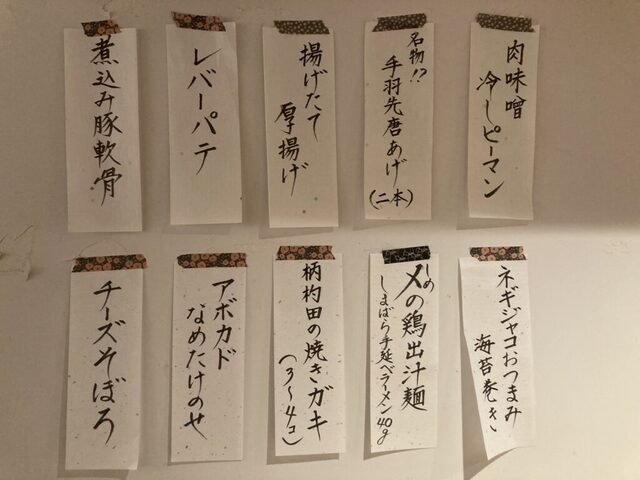 肉味噌
冷しピーマン
名物!?
手羽先唐あげ
(二本)
揚げたて
厚揚げ
レバーパテ
煮込み豚軟骨
ネギジャコおつまみ
海苔巻き
〆の鶏出汁麺
しめ
しまばら手延べラーメン40g
柄杓田の焼きガキ
(3〜4コ)
アボカド
なめたけのせ
チーズそぼろ